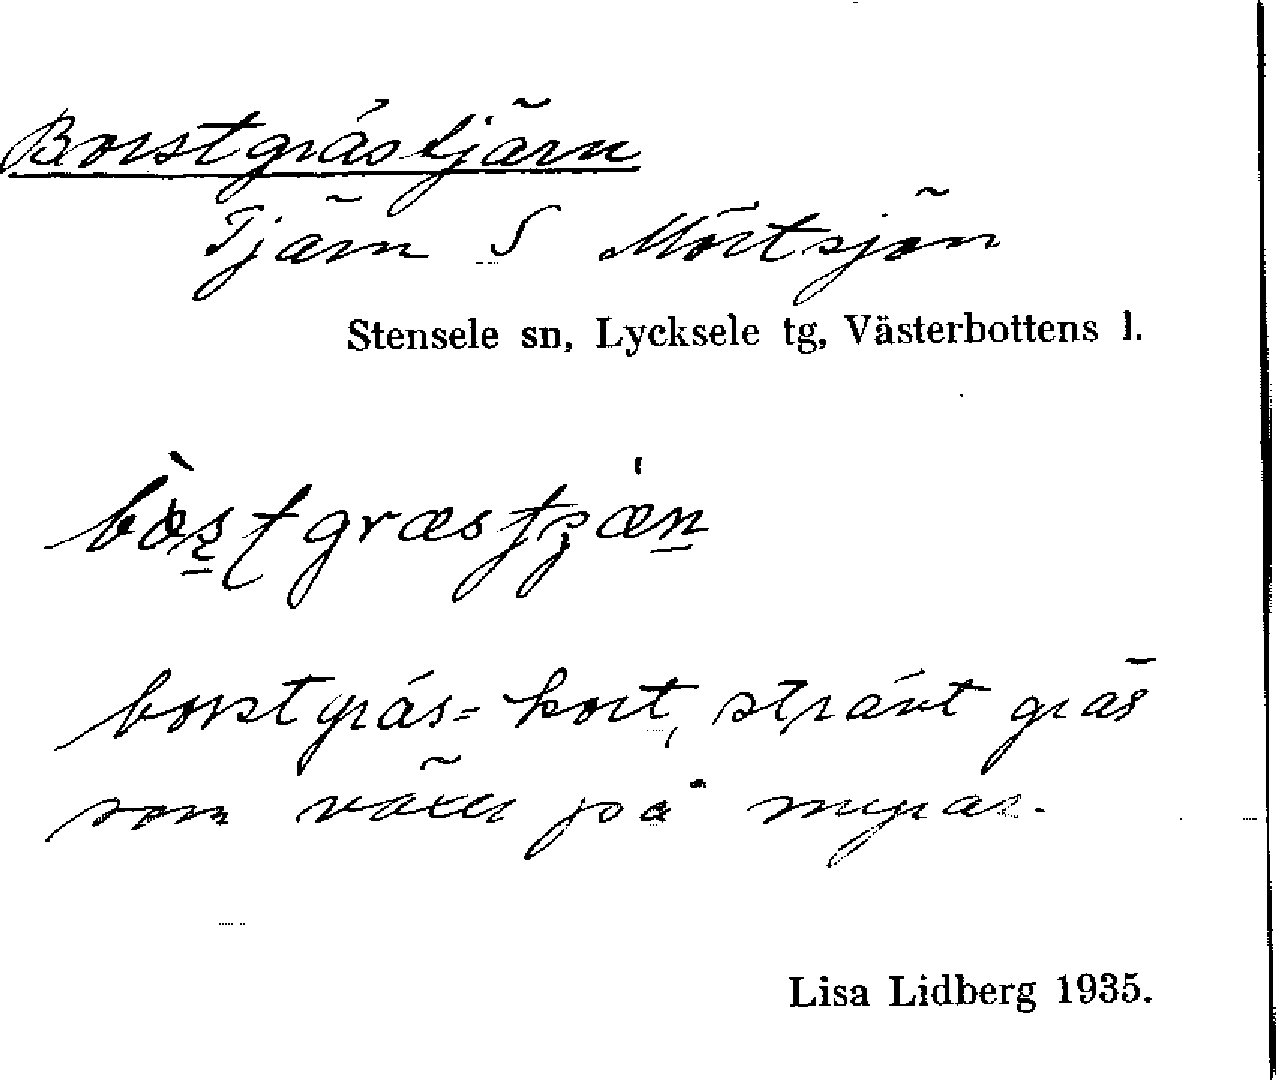 Borstgrästjärn
Tjärn S Mörtsjön
Stensele sn, Lycksele tg, Västerbottens l.
borstgräs = kort, strävt gräs
som växer på myrar.
Lisa Lidberg 1935.